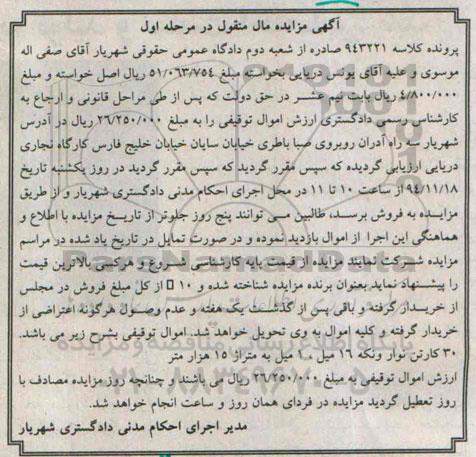 آگهی مزایده مال منقول در مرحله اول
پرونده کلاسه ۹۴۳۲۲۱ صادره از شعبه دوم دادگاه عمومی حقوقی شهریار آقای صفی اله
موسوی و علیه آقای یونس دریایی بخواسته مبلغ ۵۱/۰۶۳/۷۵۴ ریال اصل خواسته و مبلغ
۴/۸۰۰/۰۰۰ ریال بابت نیم عشر در حق دولت که پس از طی مراحل قانونی و ارجاع به
کارشناس رسمی دادگستری ارزش اموال توقیفی را به مبلغ ۲۶/۲۵۰/۰۰۰ ریال در آدرس
شهریار سه راه آدران روبروی صبا باطری خیابان سایان خیابان خلیج فارس کارگاه نجاری
دریایی ارزیابی گردیده که سپس مقرر گردید که سپس مقرر گردید در روز یکشنبه تاریخ
۹۴/۱۱/۱۸ از ساعت ۱۰ تا ۱۱ در محل اجرای احکام مدنی دادگستری شهریار و از طریق
مزایده به فروش برسد، طالبین می توانند پنج روز جلوتر از تاریخ مزایده با اطلاع و
هماهنگی این اجرا از اموال بازدید نموده و در صورت تمایل در تاریخ یاد شده در مراسم
مزایده شرکت نمایند مزایده از قیمت پایه کارشناسی شروع و هرکسی بالاترین قیمت
را پیشنهاد نماید بعنوان برنده مزایده شناخته شده و ۱۰ از کل مبلغ فروش در مجلس
از خریدار گرفته و باقی پس از گذشت یک هفته و عدم وصول هرگونه اعتراضی از
خریدار گرفته و کلیه اموال به وی تحویل خواهد شد. اموال توقیفی بشرح زیر می باشد.
۳۰ کارتن نوار ونکه ۱۶ میل ۱۰ میل به متراژ ۱۵ هزار متر
ارزش اموال توقیفی به مبلغ ۲۶/۲۵۰/۰۰۰ ریال می باشند و چنانچه روز مزایده مصادف با
روز تعطیل گردید مزایده در فردای همان روز و ساعت انجام خواهد شد.
مدیر اجرای احکام مدنی دادگستری شهریار
ParsNamadData
پایگاه اطلاع رسانی مناقصه و مزایده
۰۲۱-۸۸۳۴۹۶۷۰-۵